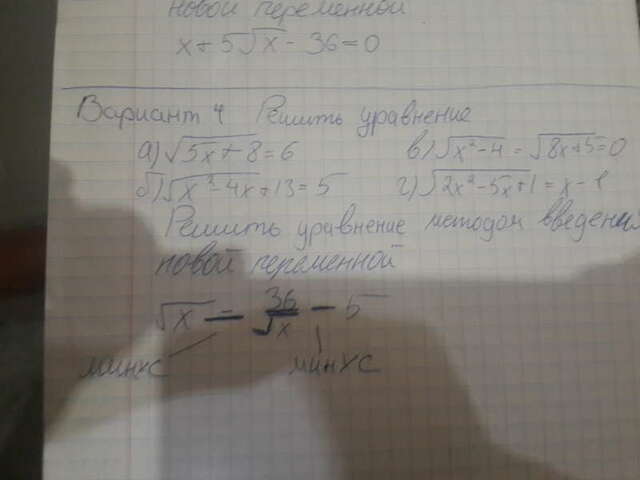 новой переменной
x + 5√x - 36 = 0
Вариант 4 Решить уравнение
а) √5x + 8 = 6 в) √x² - 4 = √8x + 5 = 0
б) √x² - 4x + 13 = 5 г) √2x² - 5x + 1 = x - 1
Решить уравнение методом введени
новой переменной
√x - 36/√x - 5
минус минус